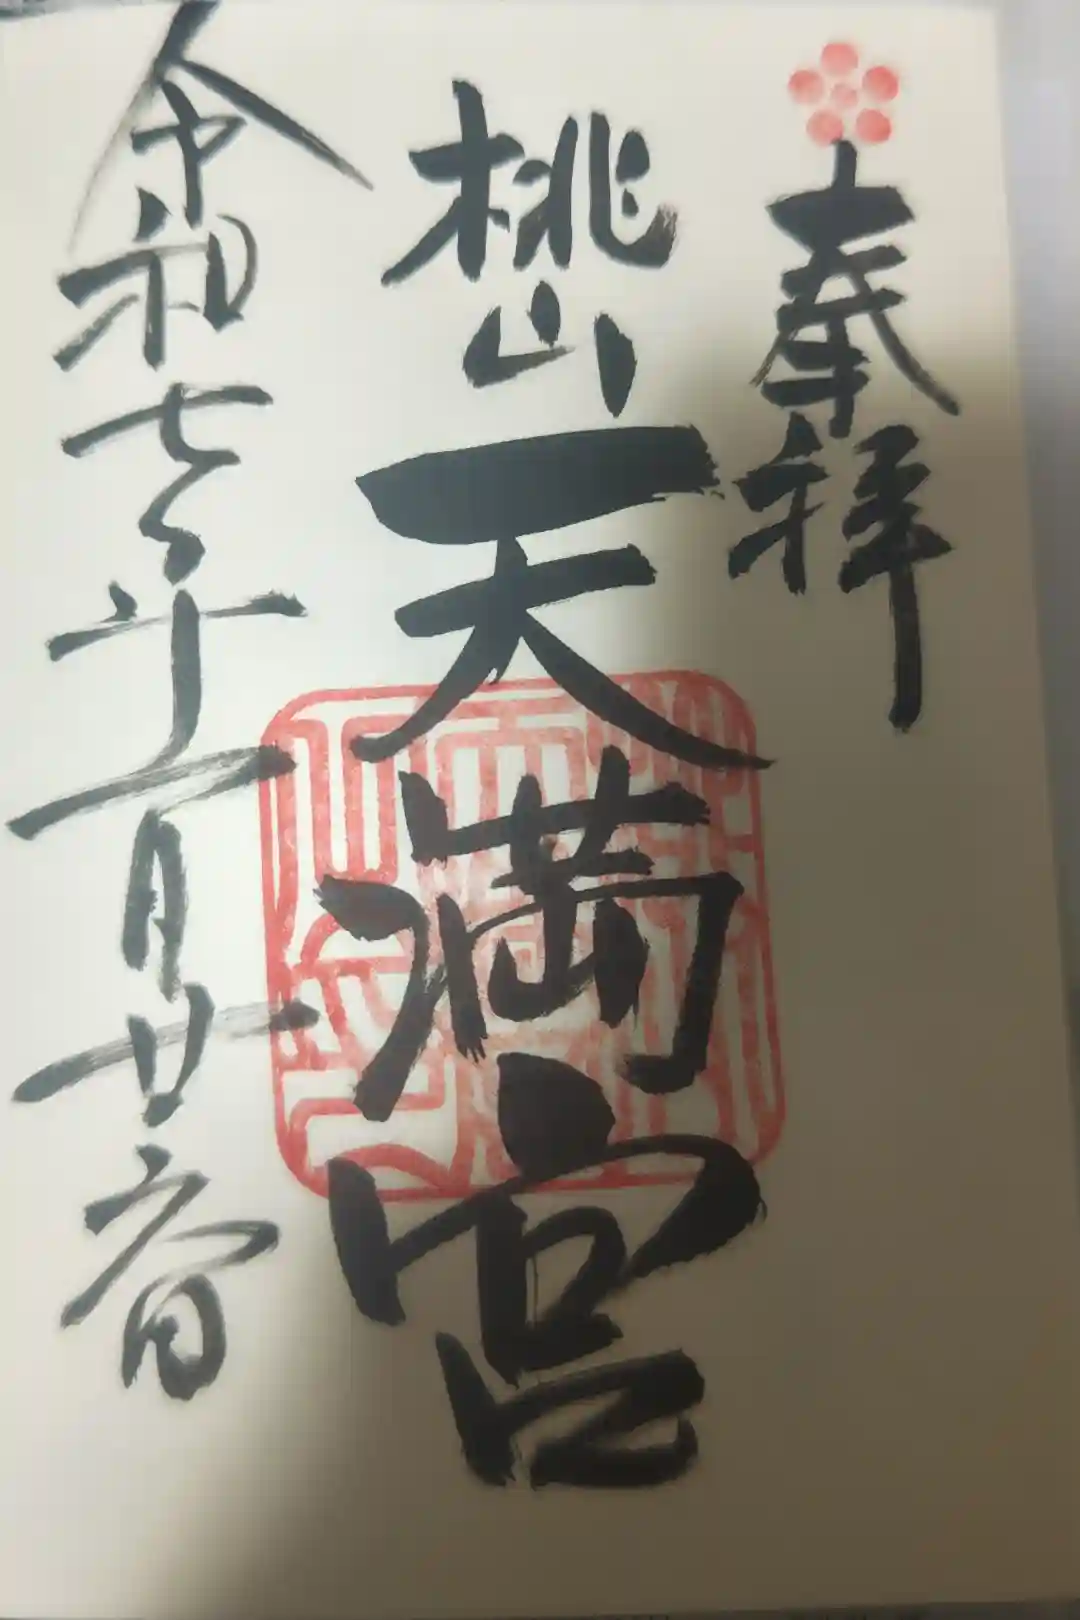 奉拝
桃山天満宮
令和七年一月廿日